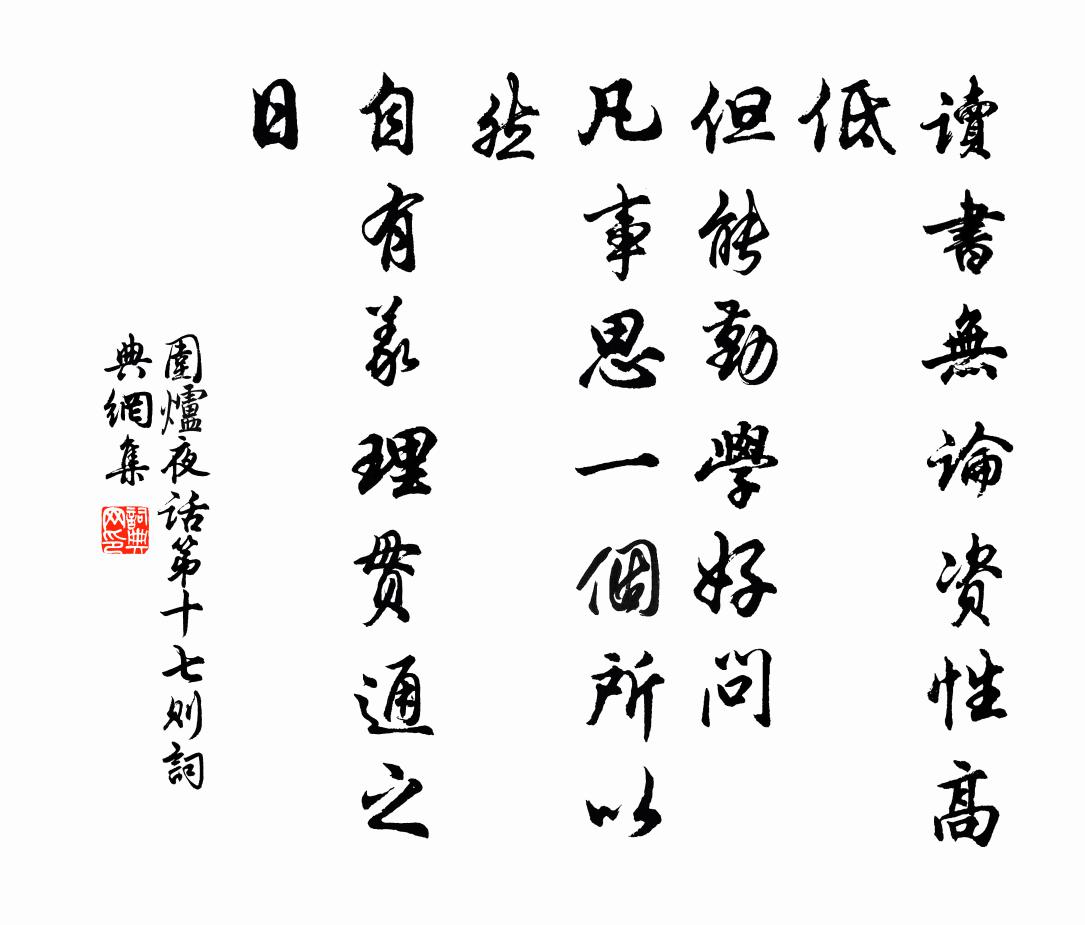 讀書無論資性高
低
但能勤學好問
凡事思一個所以
然
自有義理貫通之
日
圍爐夜话第十七则詞
典網集
詞典
网印